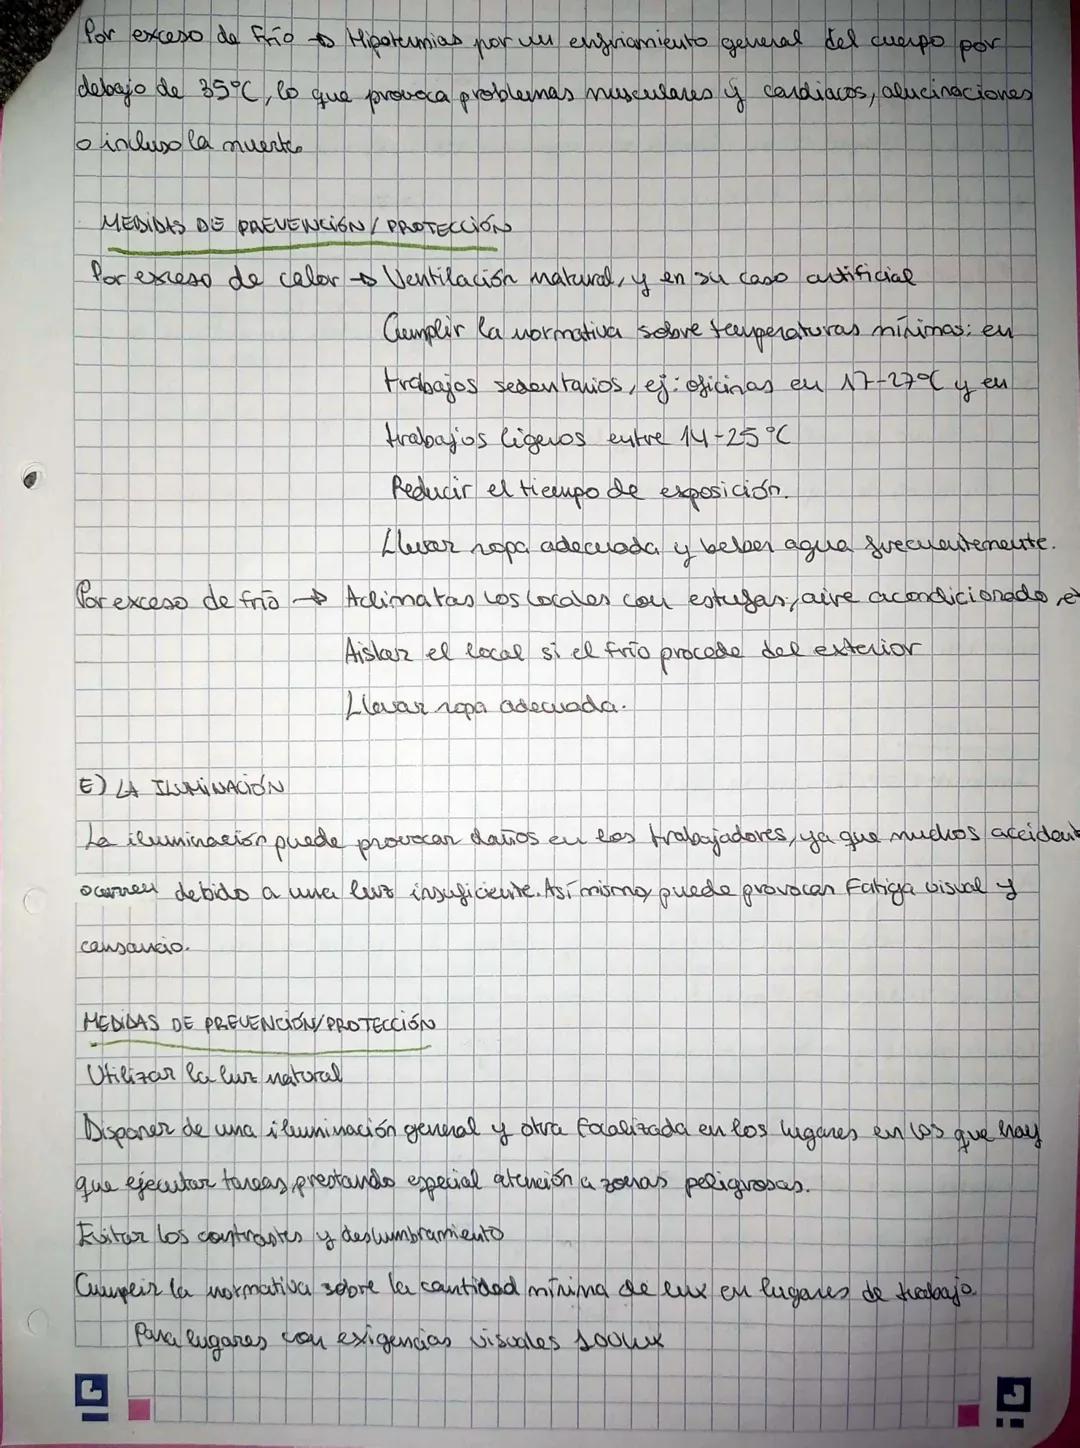 Por exceso de frío → Hipotermias por un enfriamiento general del cuerpo por
debajo de 35ºC, lo que provoca problemas musculares y cardiacos, alucinaciones
o incluso la muerte.
MEDIDAS DE PREVENCIÓN / PROTECCIÓN
Por exceso de calor → Ventilación natural, y en su caso artificial
Cumplir la normativa sobre temperaturas mínimas: en
trabajos sedentarios, ej: oficinas en 17-27ºC y en
trabajos ligeros entre 14-25ºC
Reducir el tiempo de exposición.
Llevar ropa adecuada y beber agua frecuentemente.
Por exceso de frío → Aclimatar los locales con estufas, aire acondicionado, e
Aislar el local si el frío procede del exterior
Llevar ropa adecuada.
E) LA ILUMINACIÓN
La iluminación puede provocar daños en los trabajadores, ya que muchos accident
ocurren debido a una luz insuficiente. Así mismo, puede provocar fatiga visual y
cansancio.
MEDIDAS DE PREVENCIÓN/PROTECCIÓN
Utilizar la luz natural
Disponer de una iluminación general y otra focalizada en los lugares en los que hay
que ejecutar tareas, prestando especial atención a zonas peligrosas.
Evitar los contrastes y deslumbramiento
Cumplir la normativa sobre la cantidad mínima de lux en lugares de trabajo.
Para lugares con exigencias visuales 100lux